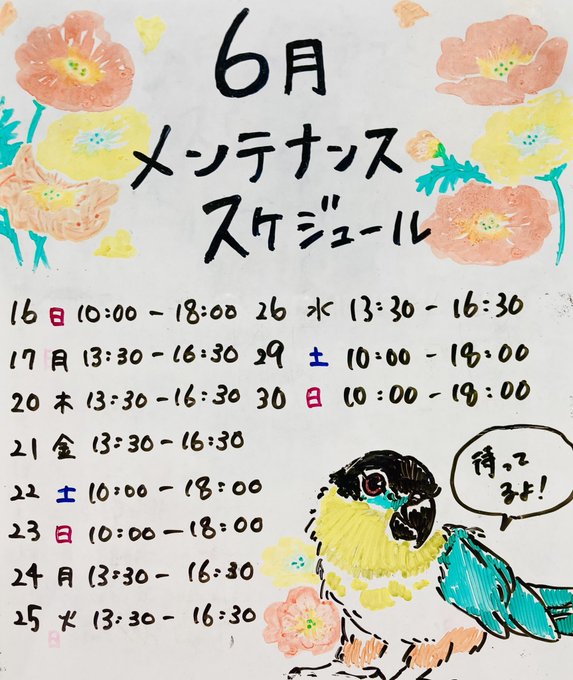 6月
メンテナンス
スケジュール
16 日 10:00 - 18:00
17 月 13:30 - 16:30
20 木 13:30 - 16:30
21 金 13:30 - 16:30
22 土 10:00 - 18:00
23 日 10:00 - 18:00
24 月 13:30 - 16:30
25 火 13:30 - 16:30
26 水 13:30 - 16:30
29 土 10:00 - 18:00
30 日 10:00 - 18:00
待って
るよ!